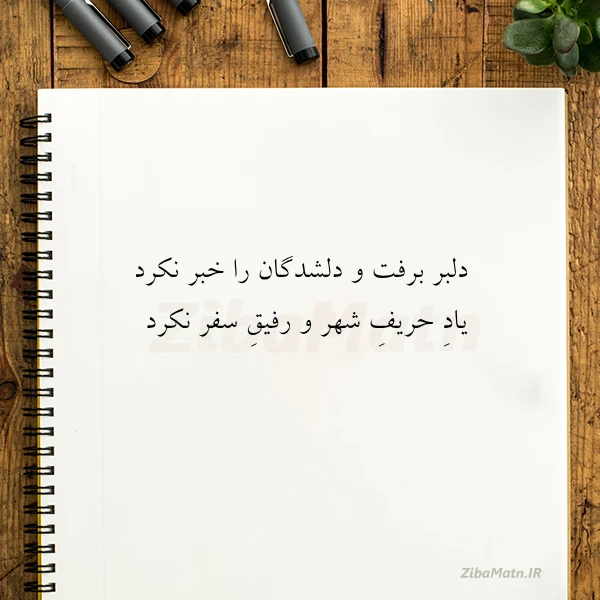 دلبر برفت و دلشدگان را خبر نکرد
یادِ حریفِ شهر و رفیقِ سفر نکرد
ZibaMatn
ZibaMatn.IR